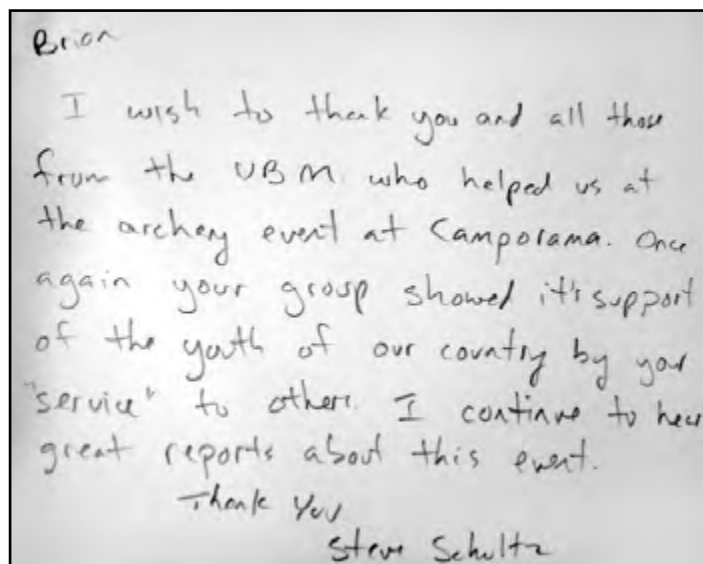 Brian
I wish to thank you and all those
from the UBM who helped us at
the archery event at Camporama. Once
again your group showed it's support
of the youth of our country by your
"service" to others. I continue to hear
great reports about this event.
Thank You
Steve Schultz